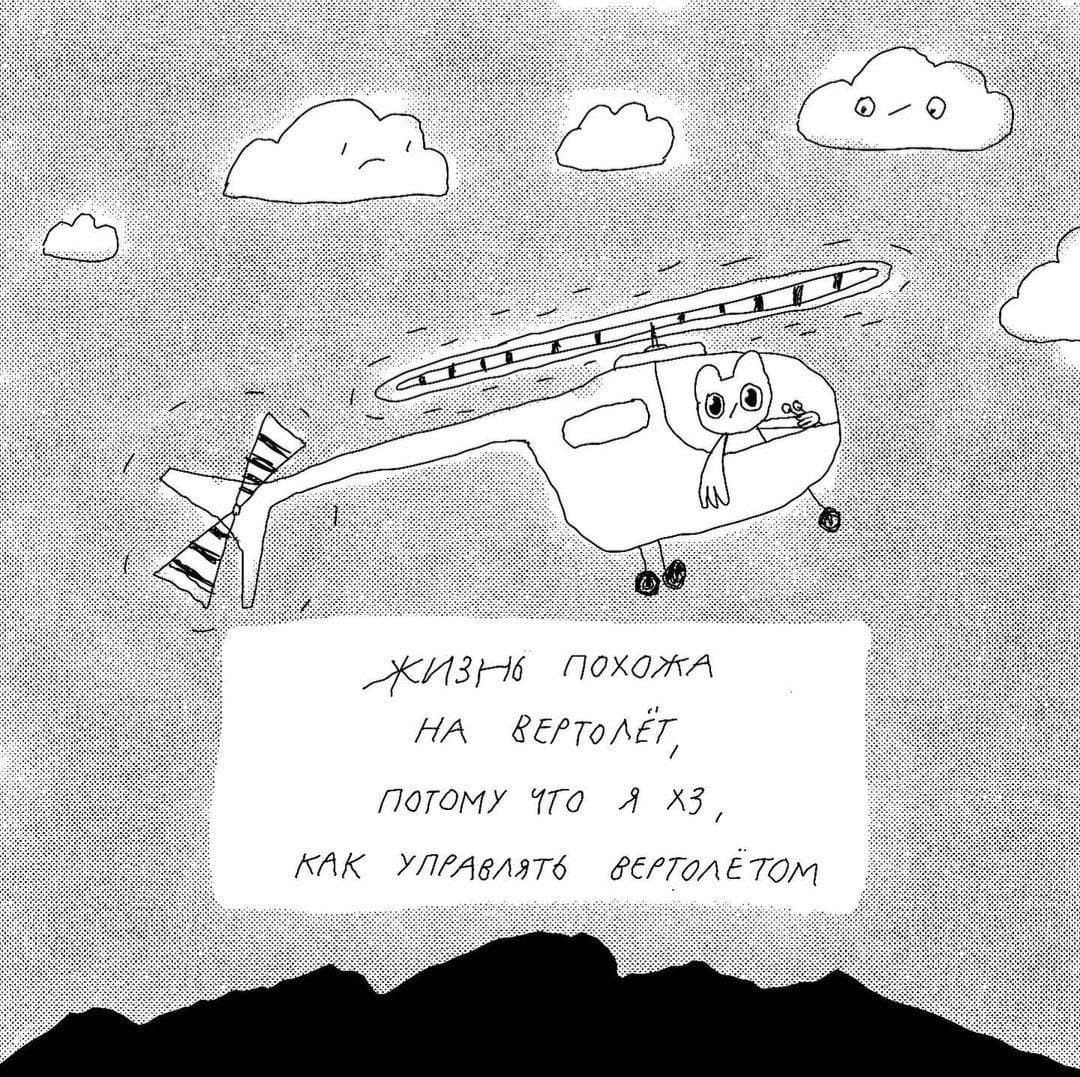 ЖИЗНЬ ПОХОЖА
НА ВЕРТОЛЁТ,
ПОТОМУ ЧТО Я ХЗ,
КАК УПРАВЛЯТЬ ВЕРТОЛЁТОМ